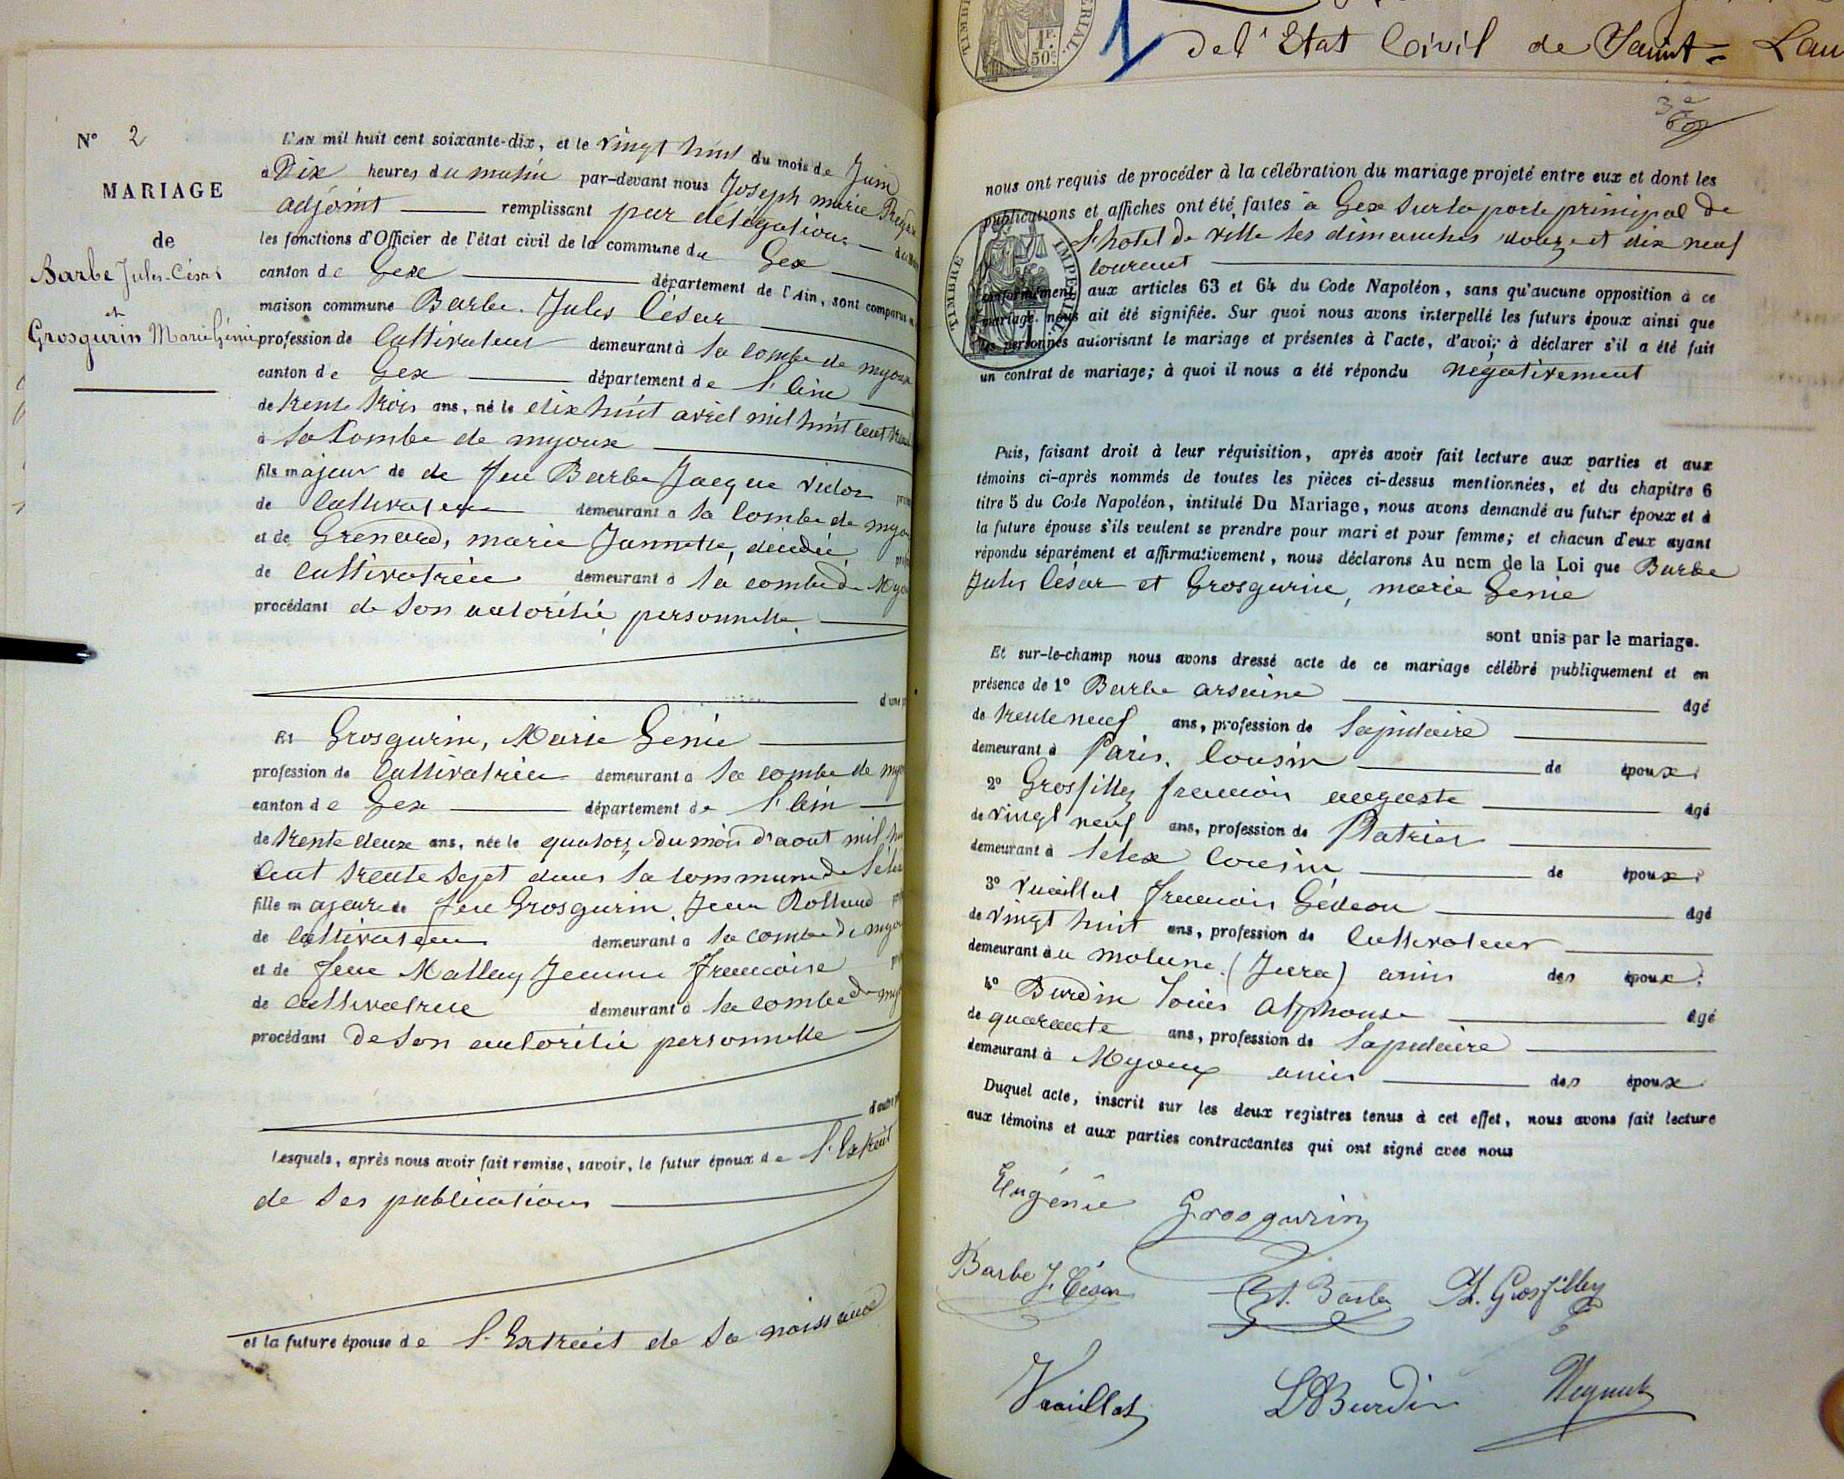 N° 2
MARIAGE
de
Barbe Jules-César
et
Grosgurin Marie Génie
L'AN mil huit cent soixante-dix, et le vingt huit du mois de Juin
à Dix heures du matin par-devant nous Joseph marie
adjoint remplissant par délégation
les fonctions d'Officier de l'état civil de la commune de Gex
canton de Gex département de l'Ain, sont comparus
maison commune Barbe Jules César
profession de Cultivateur demeurant à la combe de myoux
canton de Gex département de l'ain
de trente trois ans, né le dix huit avril mil huit cent
à la Combe de myoux
fils majeur de de feu Barbe Jacque victor
de Cultivateur demeurant à la Combe de
et de Grenard, marie Jannette, décédée
de cultivatrice demeurant à la combe de
procédant de son autorité personnelle
d'une
Et Grosgurin, Marie Génie
profession de Cultivatrice demeurant à la combe de
canton de Gex département de l'ain
de trente deux ans, née le quatorze du mois d'aout mil
cent trente sept dans la commune de
fille majeure de feu Grosgurin Jean Rolland
de Cultivateur demeurant à la combe de
et de feue Mathey Jeanne Francoise
de cultivatrice demeurant à la combe de
procédant de son autorité personnelle
d'autre
Lesquels, après nous avoir fait remise, savoir, le futur époux de l'Extrait
de ses publications
et la future épouse de l'Extrait de sa naissance
1F.
50c.
de l'Etat Civil de Saint-Lau
3e
nous ont requis de procéder à la célébration du mariage projeté entre eux et dont les
publications et affiches ont été faites à Gex sur la porte principal de
l'hotel de ville les dimanches douze et dix neuf
courent
TIMBRE IMPÉRIAL
conformément aux articles 63 et 64 du Code Napoléon, sans qu'aucune opposition à ce
mariage nous ait été signifiée. Sur quoi nous avons interpellé les futurs époux ainsi que
les personnes autorisant le mariage et présentes à l'acte, d'avoir à déclarer s'il a été fait
un contrat de mariage; à quoi il nous a été répondu négativement
Puis, faisant droit à leur réquisition, après avoir fait lecture aux parties et aux
témoins ci-après nommés de toutes les pièces ci-dessus mentionnées, et du chapitre 6
titre 5 du Code Napoléon, intitulé Du Mariage, nous avons demandé au futur époux et à
la future épouse s'ils veulent se prendre pour mari et pour femme; et chacun d'eux ayant
répondu séparément et affirmativement, nous déclarons Au nom de la Loi que Barbe
Jules César et Grosgurin, marie Génie
sont unis par le mariage.
Et sur-le-champ nous avons dressé acte de ce mariage célébré publiquement et en
présence de 1° Barbe arsaine âgé
de trente neuf ans, profession de Lapidaire
demeurant à Paris. Cousin de époux
2° Grosfilley francois auguste âgé
de vingt neuf ans, profession de Platrier
demeurant à Lelex Cousin de époux
3° Vuaillat francois Gédeon âgé
de vingt huit ans, profession de Cultivateur
demeurant au molune (Jura) amis des époux
4° Burdin Louis Alphonse âgé
de quarante ans, profession de Lapidaire
demeurant à Myoux amis des époux
Duquel acte, inscrit sur les deux registres tenus à cet effet, nous avons fait lecture
aux témoins et aux parties contractantes qui ont signé avec nous
Eugénie Grosgurin
Barbe J. César A. Barbe A. Grosfilley
Vuaillat L A Burdin